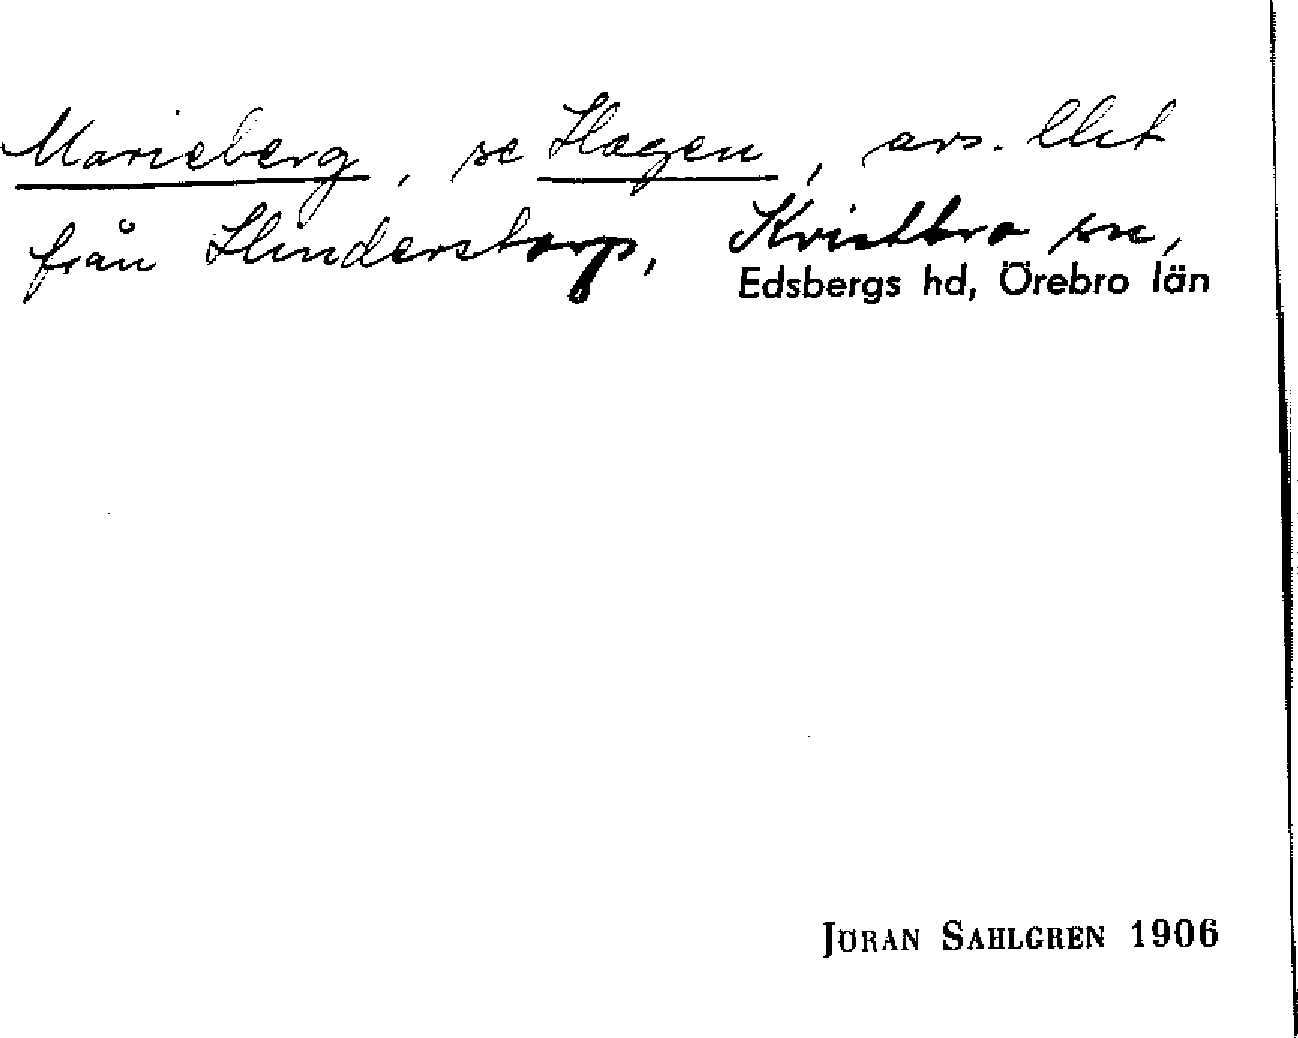 Marieberg, se Hagen, avs. lht
från Hinderstorp, Kvistbro sn,
Edsbergs hd, Örebro län
JÖRAN SAHLGREN 1906